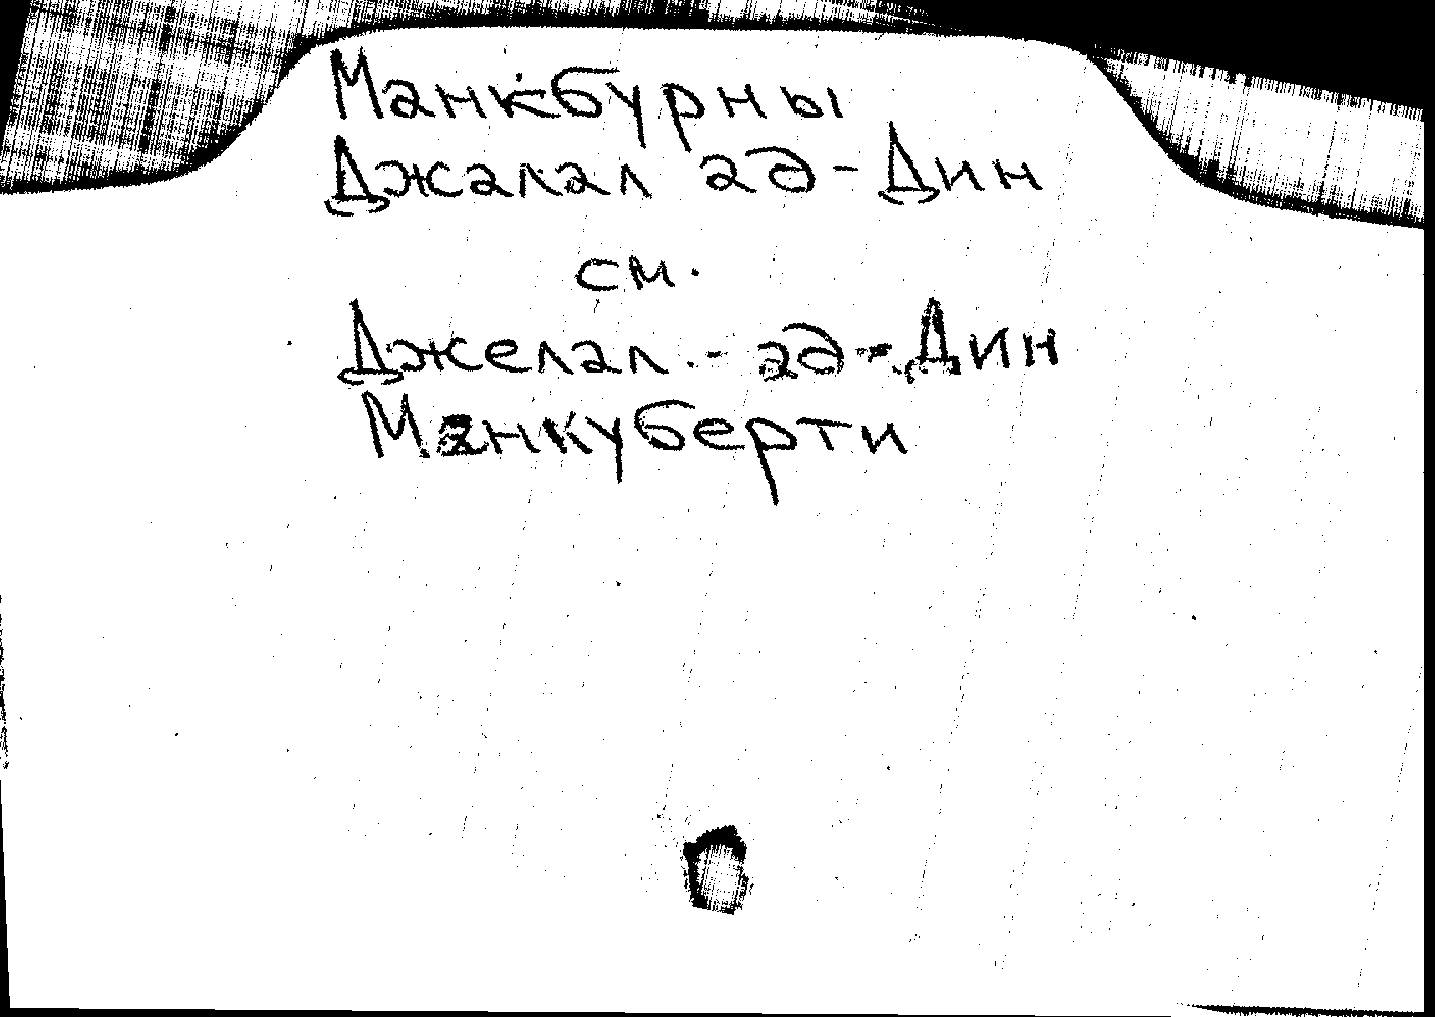 Манкбурны
Джалал ад-Дин
см.
Джелал-ад-Дин
Манкуберти